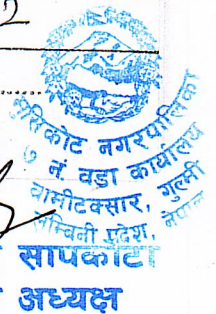 2
मुसिकोट नगरपालिका
७ नं. वडा कार्यालय
वामीटक्सार, गुल्मी
लुम्बिनी प्रदेश, नेपाल
सापकोटा
अध्यक्ष